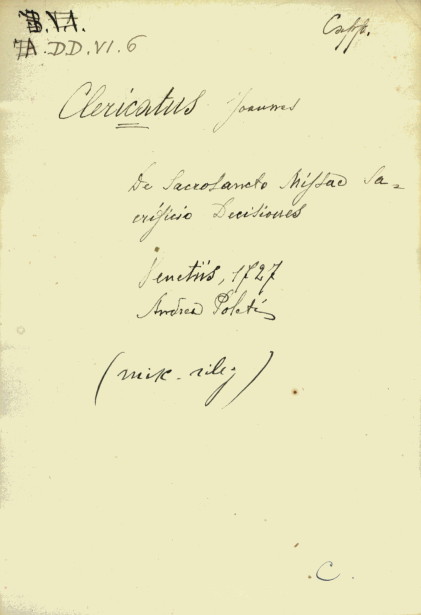 B.V.A.
7A.DD.VI.6
Capp.
Clericatus Joannes
De Sacrosancto Missae Sa=
crificio Decisiones
Venetiis, 1727
Andrea Poleti
C.